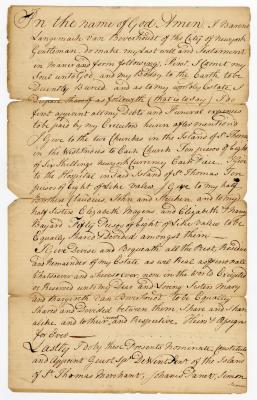 In the name of God Amen. I Barent
Langemack Van Beverhoudt of the City of Newyork
Gentleman, do make my last will and Testament
in maner and form following, First I Comit my
Soul unto God, and my Body to the Earth to be
Decently Buried, and as to my worldly Estate I
Dispose thereof as followeth (that is to say) I do
first appoint all my Debts and Funeral expences
to be paid by my Executors herein after mentioned
I Give to the two Churches in the Island of St. Thomas
in the Westindies to Each Church Ten pieces of Eight
of Six Shillings Newyork Currency Each piece. I give
to the Hospital in said Island of St. Thomas Ten
pieces of Eight of Like value, I give to my half
Brothers Claudius, John and and to my
half Sisters Elizabeth Magens and Elizabeth
Bayard Fifty Pieces of Eight of Like value to be
Equally Shared & Devided amongst them.
I Give Devise and Bequeath all the Rest, Residue
and Remainder of my Estate as well Real as personall
Whatsoever and wheresoever, now in the world
or Reserved unto my Dear and Loving Sisters Mary
and Margareth Van Beverhout to be Equally
Shared and Devided between them, Share and Share
alike and to their and Respective Heirs & Assigns
for Ever
Lastly I do by these Presents Nominate, Constitute
and Appoint De Windt of the Island
of St. Thomas Merchant, Johannes Simon